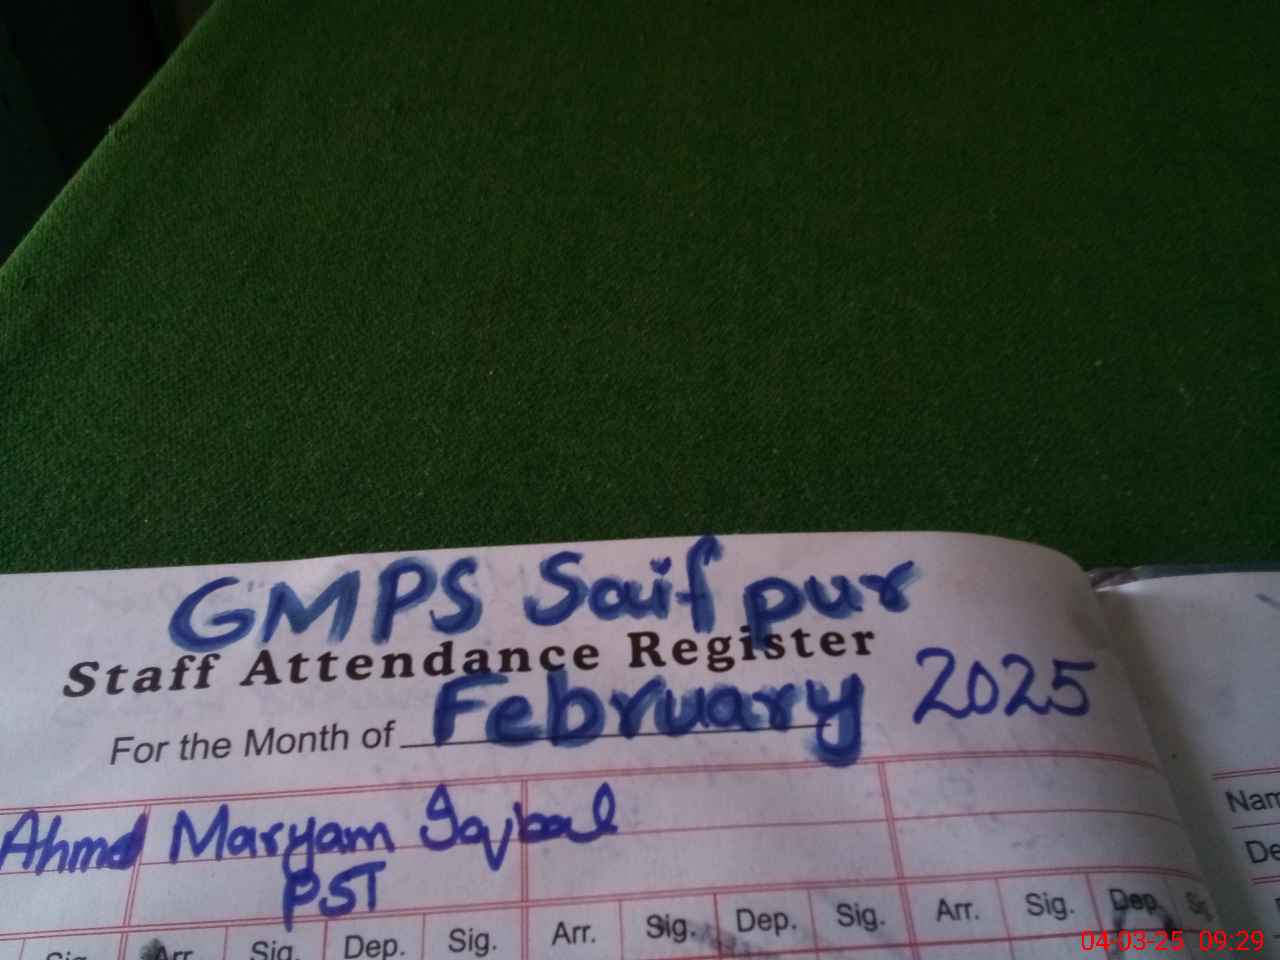 GMPS Saifpur
Staff Attendance Register
For the Month of February 2025
Ahmd Maryam Iqbal
PST
Sig. Arr. Sig. Dep. Sig. Arr. Sig. Dep. Sig. Arr. Sig. Dep. Sig.
Nam
De
04-03-25 09:29